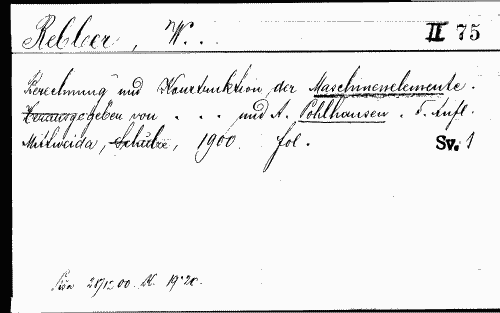 Rebber, W. . . II 75
Berechnung und Konstruktion der Maschinenelemente.
Herausgegeben von . . . und A. Pohlhausen. 5. Aufl.
Mittweida, Schulze, 1900. fol. Sv. 1
20/12 00. K. 19